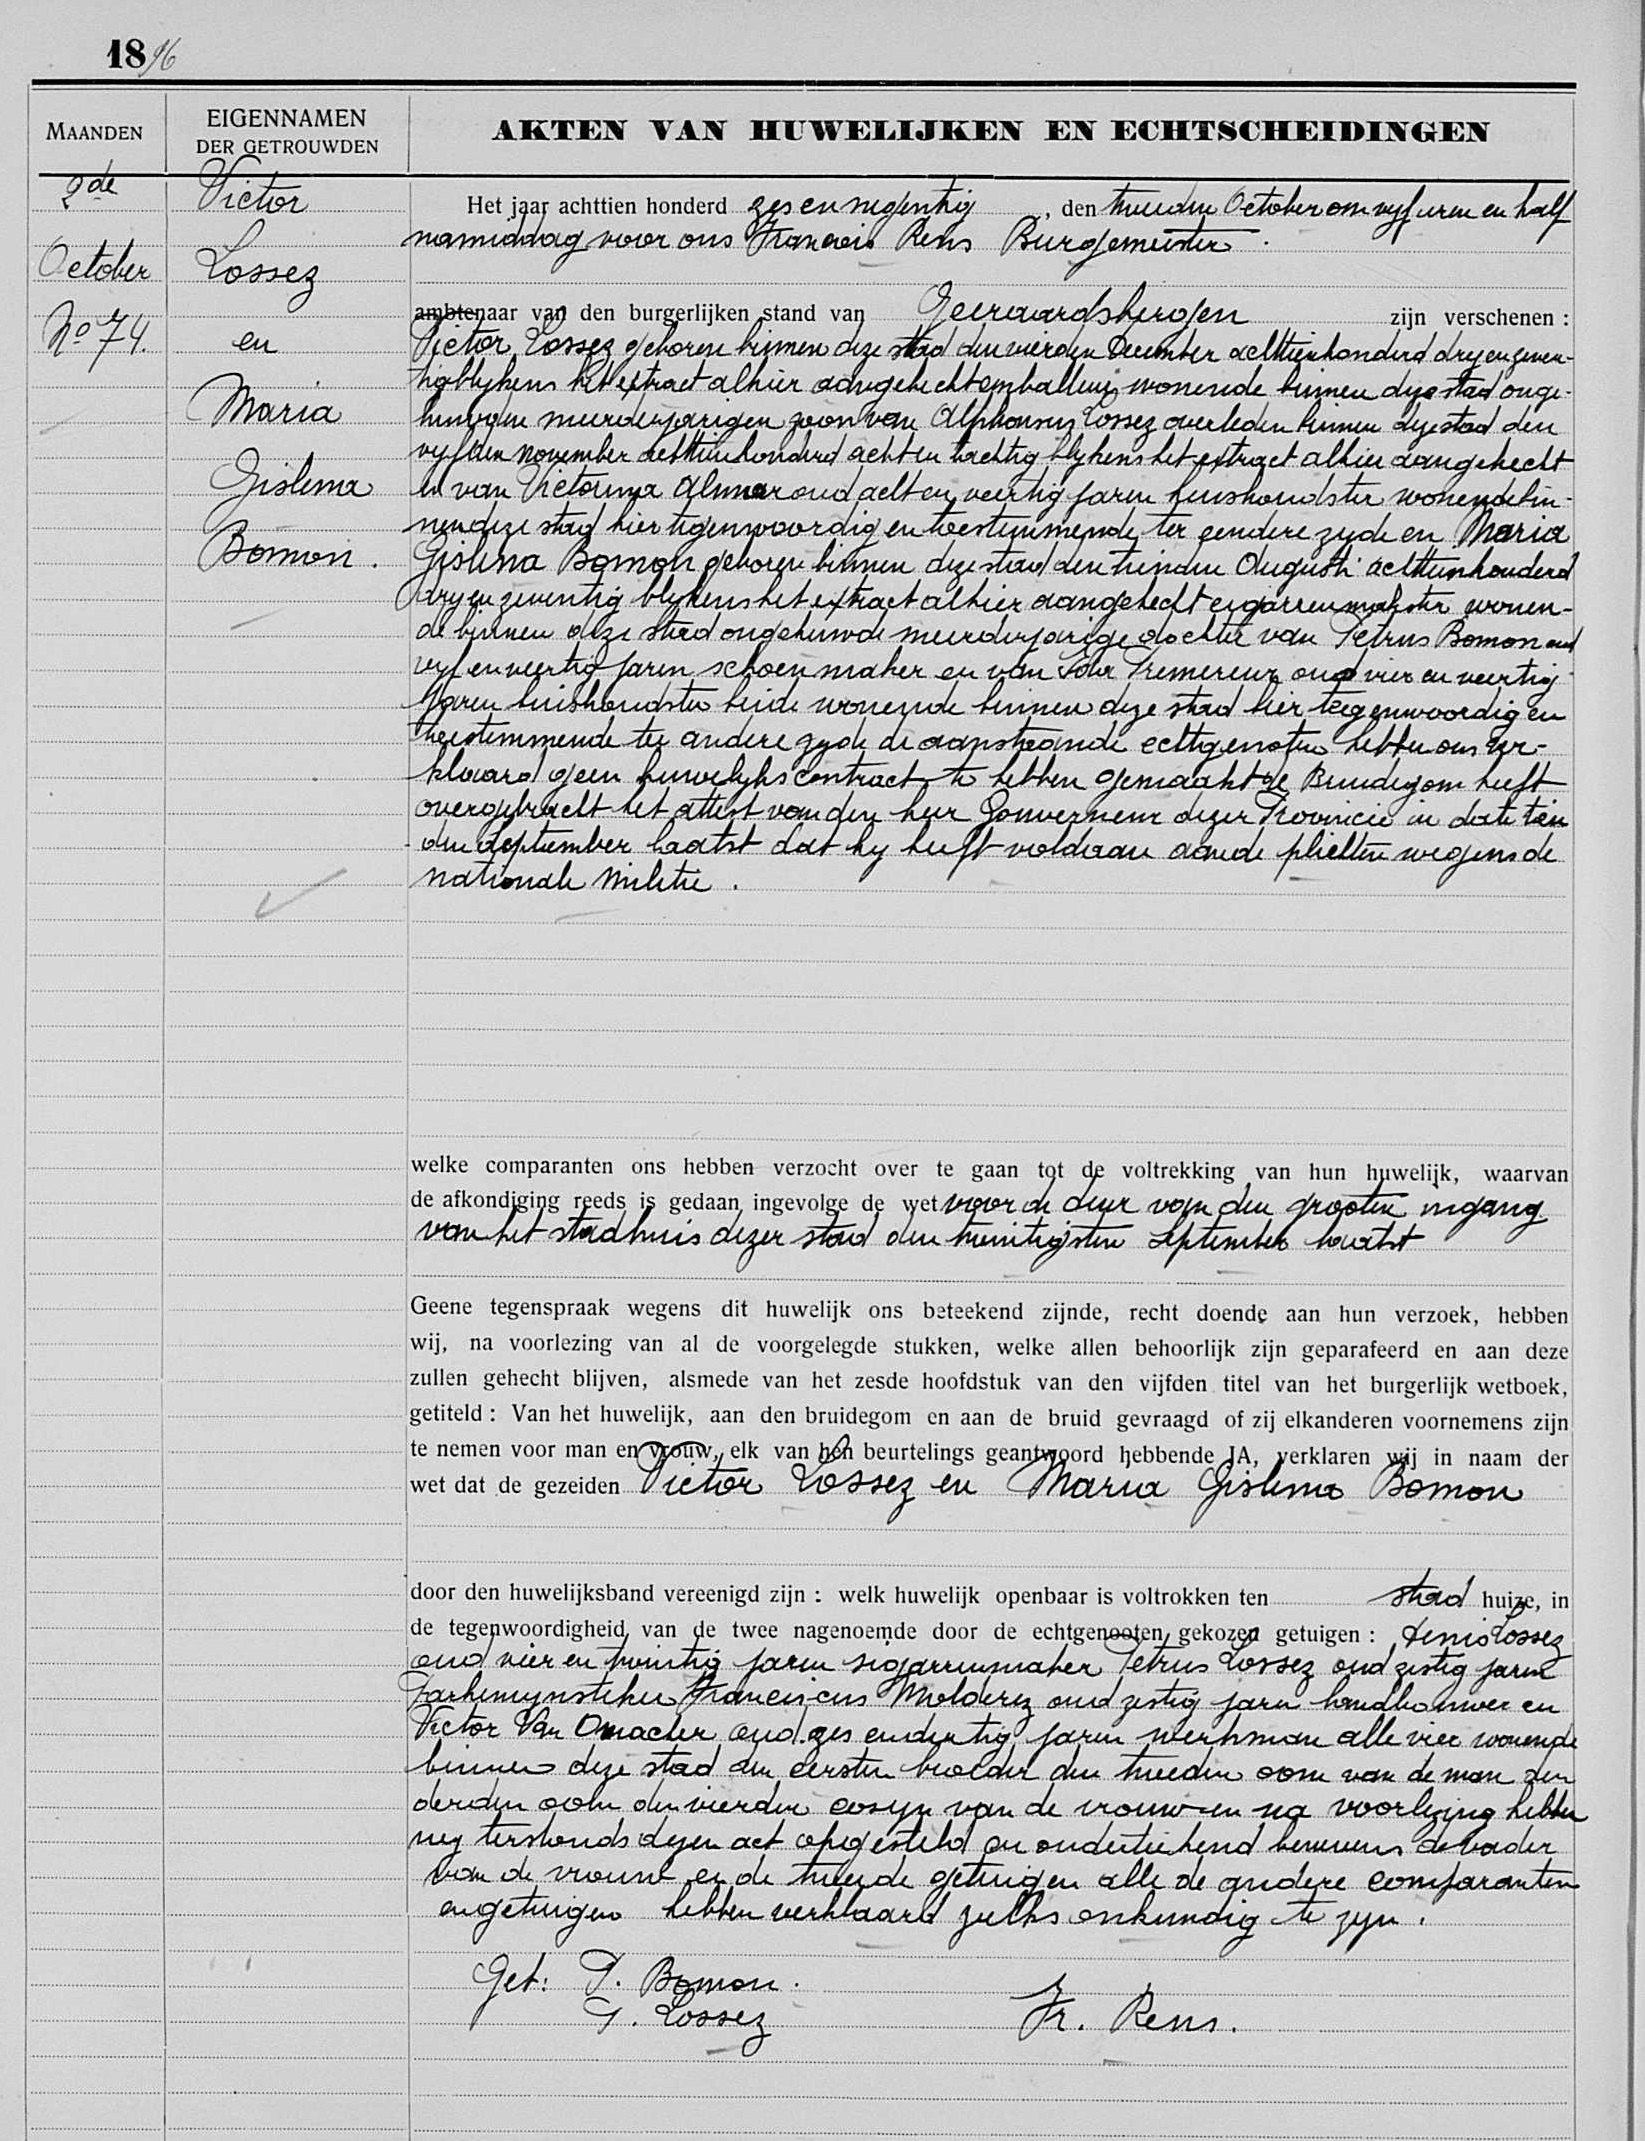 1896
MAANDEN
EIGENNAMEN
DER GETROUWDEN
AKTEN VAN HUWELIJKEN EN ECHTSCHEIDINGEN
2de
October
No 74.
Victor
Lossez
en
Maria
Gislena
Bomon.
Het jaar achttien honderd zes en negentig, den tweeden October om vyf uren en half
namiddag voor ons Francois Rens Burgemeester.
ambtenaar van den burgerlijken stand van Geeraardsbergen zijn verschenen :
Victor Lossez geboren binnen deze stad den vierden December achttienhonderd dry en zeven-
tig blykens het extract alhier aangehecht emballeur wonende binnen deze stad onge-
huwden meerderjarigen zoon van Alphonsus Lossez overleden binnen deze stad den
vyfden november achttienhonderd acht en tachtig blykens het extract alhier aangehecht
en van Victorina oud acht en veertig jaren huishoudster wonende bin-
nen deze stad hier tegenwoordig en toestemmende ter eendere zyde en Maria
Gislena Bomon geboren binnen deze stad den tweeden Augusti achttienhonderd
dry en zeventig blykens het extract alhier aangehecht cigarrenmakster wonen-
de binnen deze stad ongehuwde meerderjarige dochter van Petrus Bomon oud
vyf en veertig jaren schoenmaker en van Tremereur oud vier en veertig
jaren huishoudster beide wonende binnen deze stad hier tegenwoordig en
toestemmende ter andere zyde de aanstaande echtgenoten hebben ons ver-
klaard geen huwelyks contract te hebben gemaakt de Bruidegom heeft
overgebracht het attest van den heer Gouverneur dezer Provincie in date tien
den September laatst dat hy heeft voldaan aan de plichten wegens de
nationale militie.
welke comparanten ons hebben verzocht over te gaan tot de voltrekking van hun huwelijk, waarvan
de afkondiging reeds is gedaan ingevolge de wet voor de deur van den grooten ingang
van het stadhuis dezer stad den twintigsten September laatst
Geene tegenspraak wegens dit huwelijk ons beteekend zijnde, recht doende aan hun verzoek, hebben
wij, na voorlezing van al de voorgelegde stukken, welke allen behoorlijk zijn geparafeerd en aan deze
zullen gehecht blijven, alsmede van het zesde hoofdstuk van den vijfden titel van het burgerlijk wetboek,
getiteld : Van het huwelijk, aan den bruidegom en aan de bruid gevraagd of zij elkanderen voornemens zijn
te nemen voor man en vrouw, elk van hen beurtelings geantwoord hebbende JA, verklaren wij in naam der
wet dat de gezeiden Victor Lossez en Maria Gislena Bomon
door den huwelijksband vereenigd zijn : welk huwelijk openbaar is voltrokken ten stad huize, in
de tegenwoordigheid van de twee nagenoemde door de echtgenooten gekozen getuigen : Denis Lossez
oud vier en twintig jaren sigarrenmaker Petrus Lossez oud zestig jaren
Franciscus Molderez oud zestig jaren landbouwer en
Victor Van Omacker oud zes en dertig jaren werkman alle vier wonende
binnen deze stad den eersten broeder den tweeden oom van de man den
derden oom den vierden cosyn van de vrouw en na voorlezing hebben
wy terstonds dezen act opgesteld en onderteekend benevens de vader
van de vrouw en de tweede getuigen alle de andere comparanten
en getuigen hebben verklaard zulks onkundig te zyn.
Get: P. Bomon.
P. Lossez
Fr. Rens.